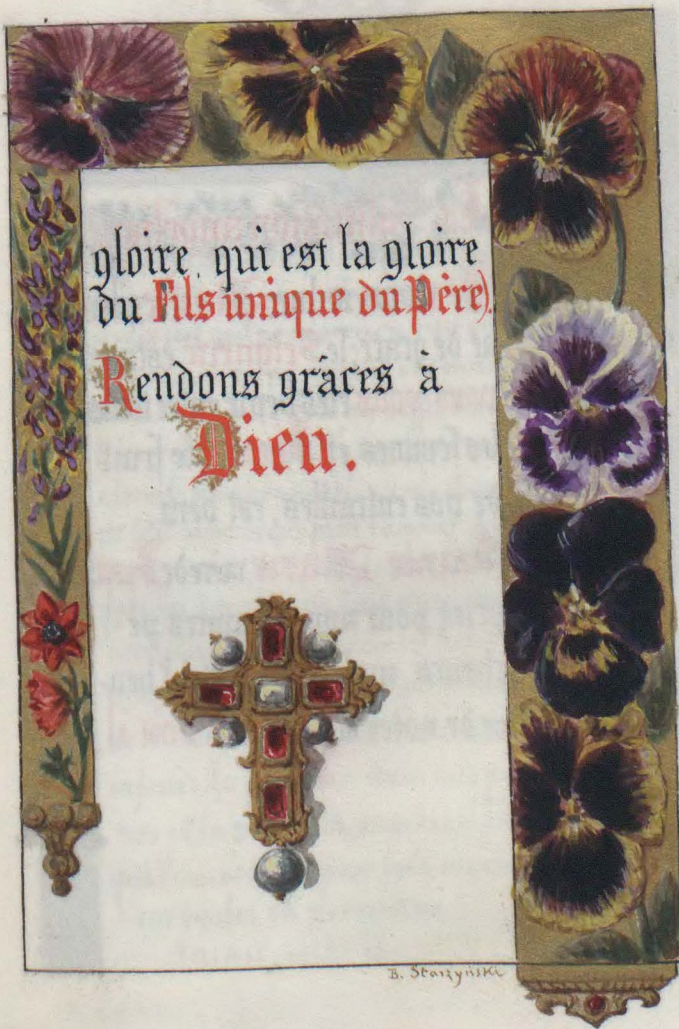 gloire, qui est la gloire
du Fils unique du Père).
Rendons grâces à
Dieu.
B. Starzyński